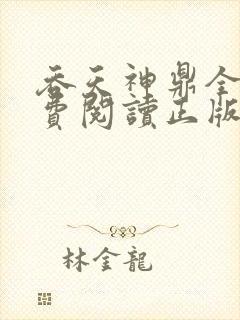 吞天神鼎全
費閱讀正版
林金龍